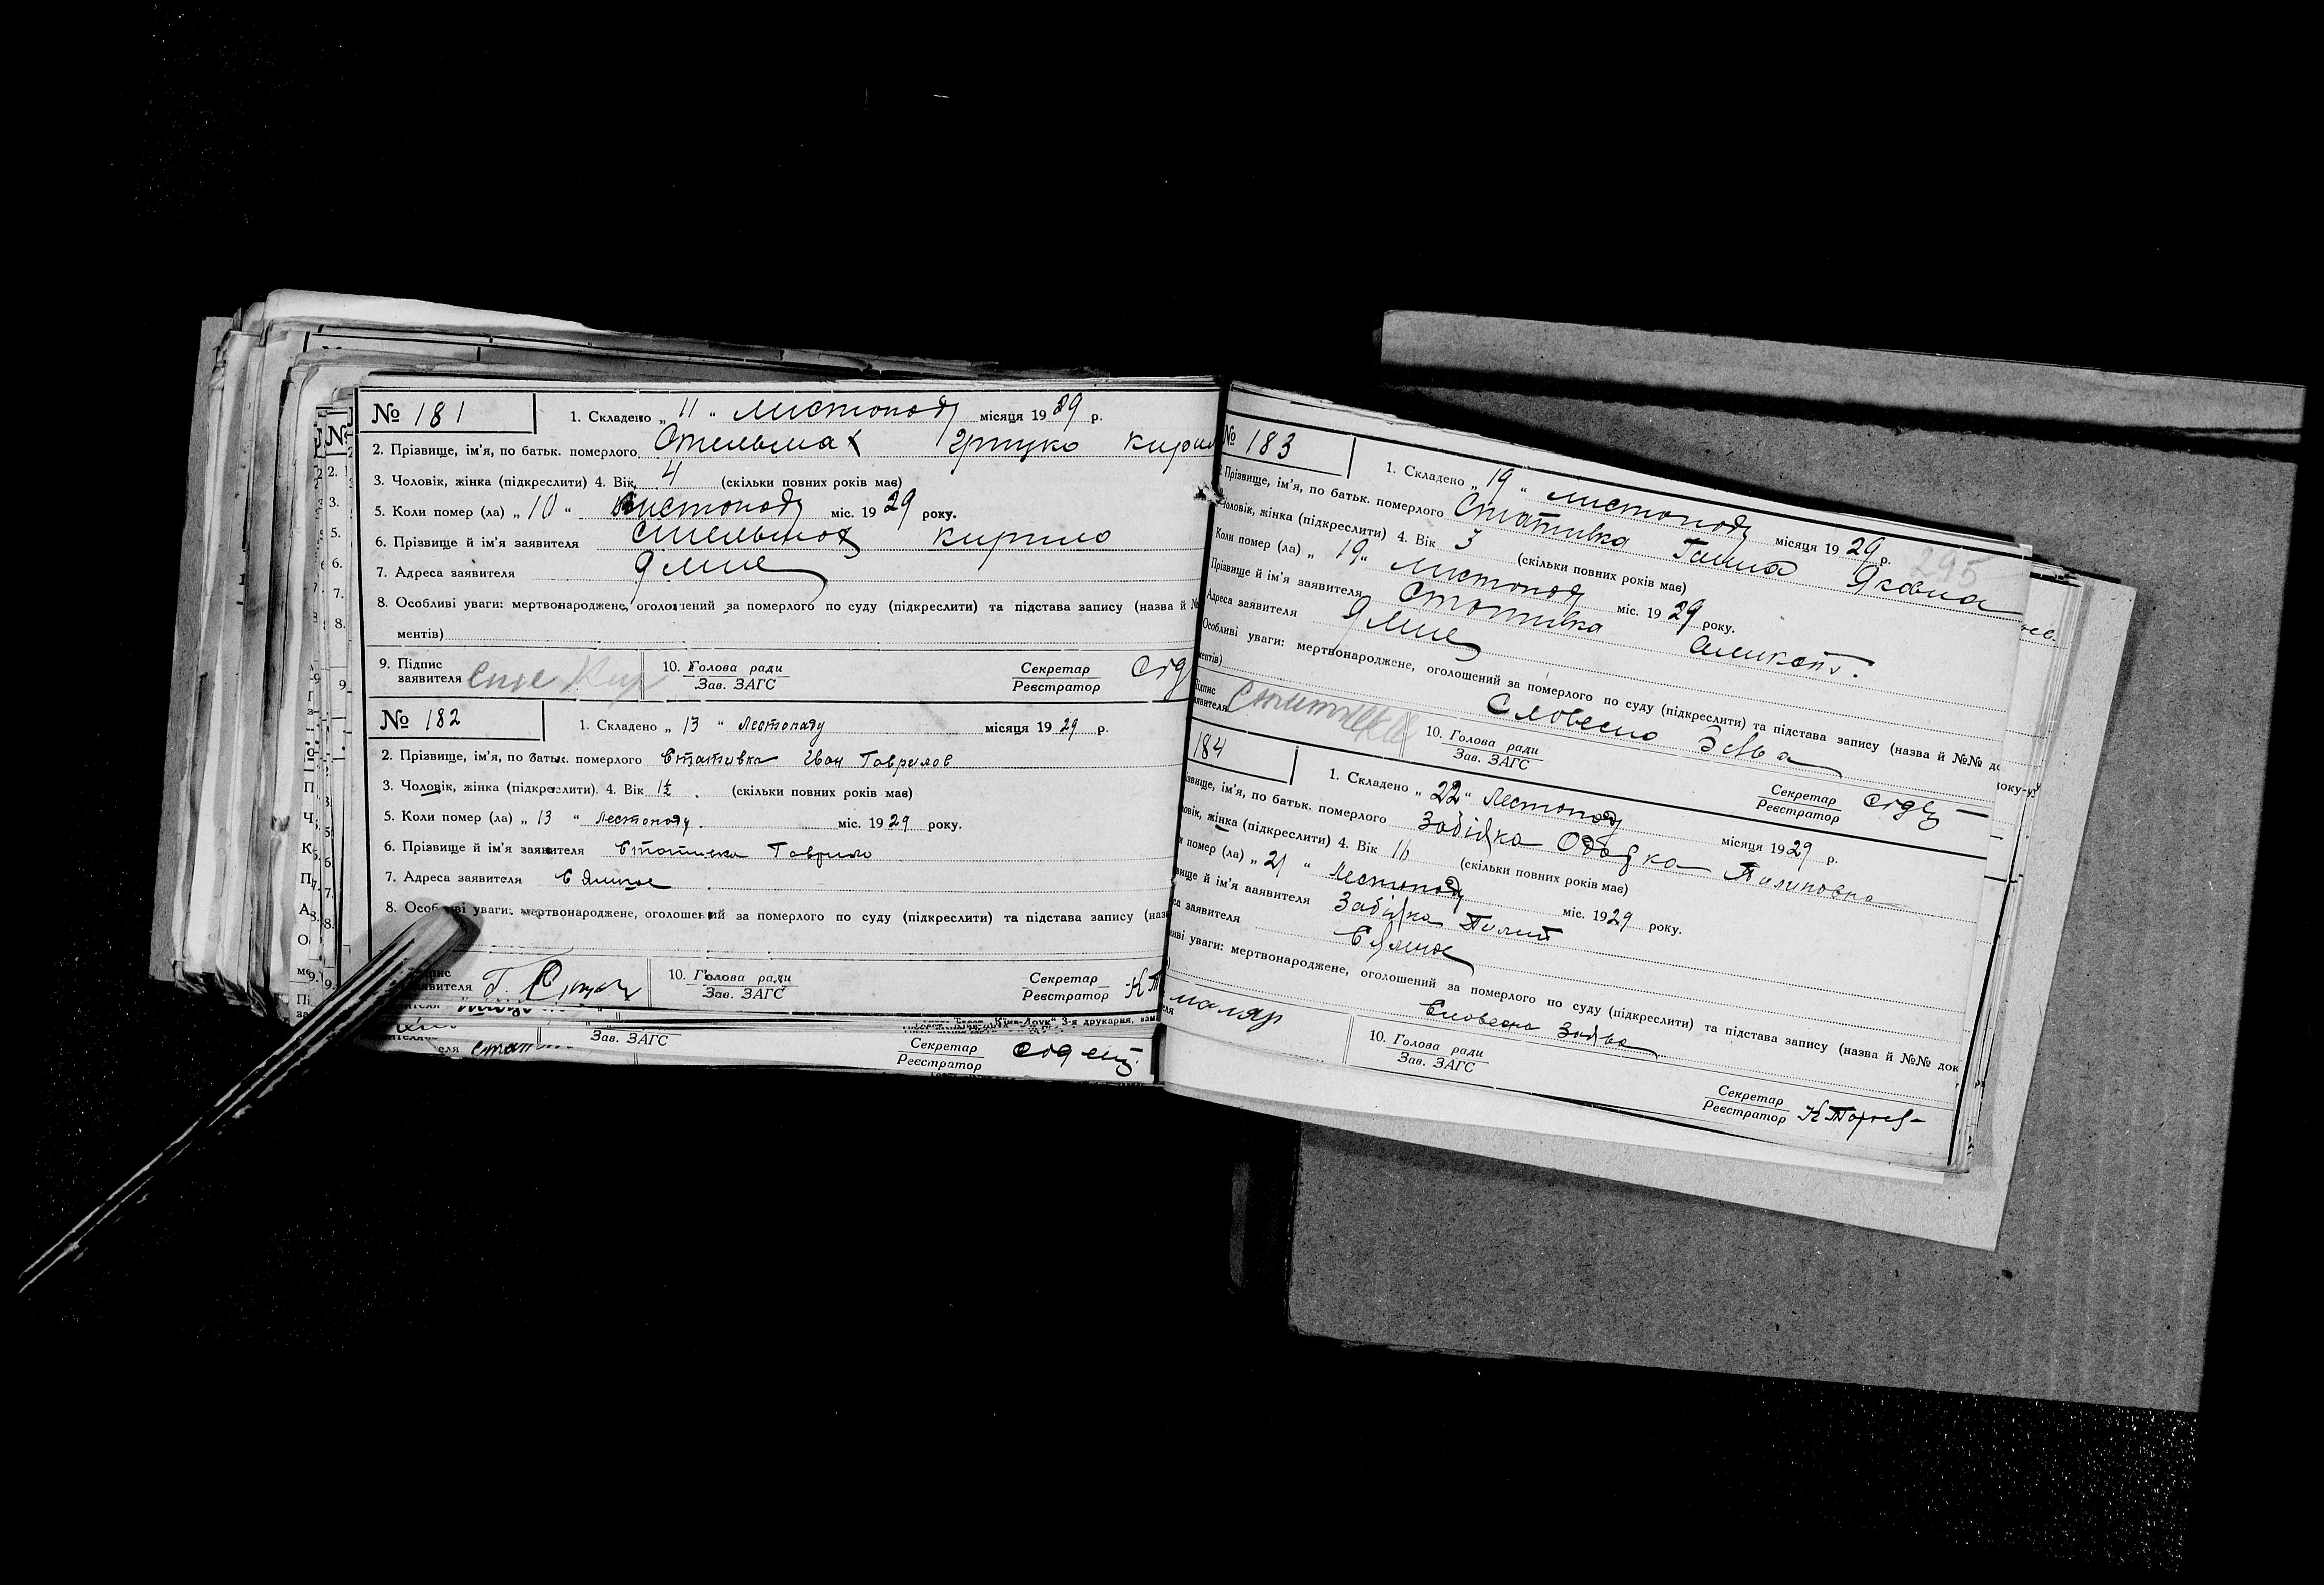 № 181
1. Складено „ 11 “ листопада місяця 1929 р.
2. Прізвище, ім'я, по батьк. померлого Стельмах кирил
3. Чоловік, жінка (підкреслити) 4. Вік 4 (скільки повних років має)
5. Коли помер (ла) „ 10 “ листопада міс. 1929 року.
6. Прізвище й ім'я заявителя Стельмах кирило
7. Адреса заявителя
8. Особливі уваги: мертвонароджене, оголошений за померлого по суду (підкреслити) та підстава запису (назва й №
ментів)
9. Підпис заявителя
10. Голова ради
Зав. ЗАГС
Секретар
Реєстратор
№ 182
1. Складено „ 13 “ Лестопаду місяця 1929 р.
2. Прізвище, ім'я, по батьк. померлого Стативка Іван Гаврилов
3. Чоловік, жінка (підкреслити). 4. Вік 1½ (скільки повних років має)
5. Коли помер (ла) „ 13 “ лестопаду. міс. 1929 року.
6. Прізвище й ім'я заявителя Стативка Гаврило
7. Адреса заявителя
8. Особливі уваги: мертвонароджене, оголошений за померлого по суду (підкреслити) та підстава запису (назв
заявителя
10. Голова ради
Зав. ЗАГС
Секретар
Реєстратор
Зав. ЗАГС
Секретар
Реєстратор
№ 183
295
1. Складено „ 19 “ листопада місяця 1929 р.
Прізвище, ім'я, по батьк. померлого Стативка Ганна Яковна
Чоловік, жінка (підкреслити) 4. Вік 3 (скільки повних років має)
Коли помер (ла) „ 19 “ листопада міс. 1929 року.
Прізвище й ім'я заявителя Стативка
Адреса заявителя
Особливі уваги: мертвонароджене, оголошений за померлого по суду (підкреслити) та підстава запису (назва й №№ до
ментів) Словесна
10. Голова ради
Зав. ЗАГС
Секретар
Реєстратор
184
1. Складено „ 22 “ Лестопаду місяця 1929 р.
звище, ім'я, по батьк. померлого Забіяка Пилиповна
овік, жінка (підкреслити) 4. Вік 16 (скільки повних років має)
и помер (ла) „ 21 “ Лестопаду міс. 1929 року.
вище й ім'я заявителя Забіяка Пилип
са заявителя
иві уваги: мертвонароджене, оголошений за померлого по суду (підкреслити) та підстава запису (назва й №№ док
Словесна Заява
маляр
10. Голова ради
Зав. ЗАГС
Секретар
Реєстратор